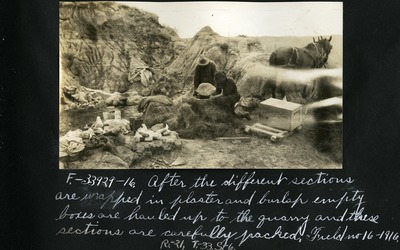 F.-33929-16. After the different sections
are wrapped in plaster and burlap empty
boxes are hauled up to the quarry and these
sections are carefully packed. Field no 16-1916
R.21, T.33, S.6